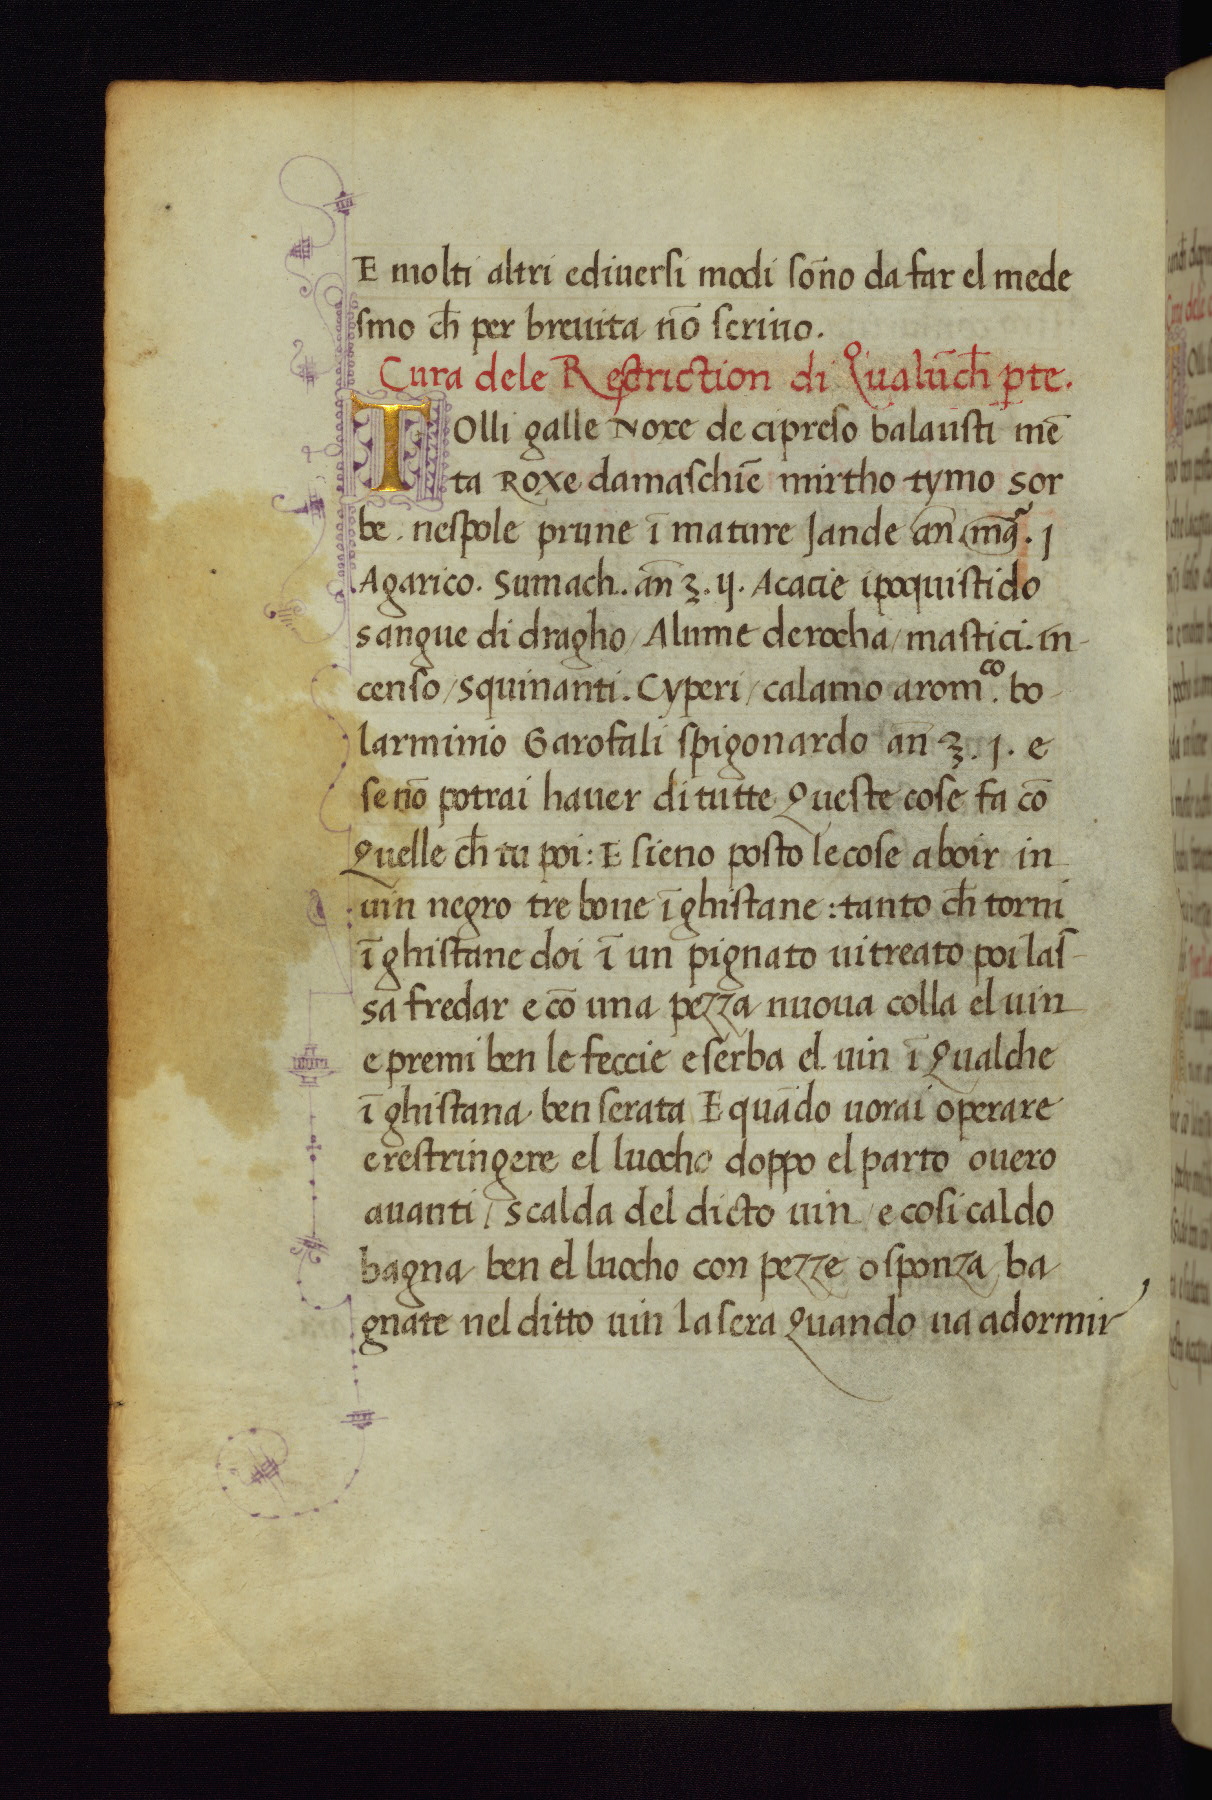 E molti altri ediuersi modi soño da far el mede
smo ch̄ per breuita nō scriuo.
Cura dele Restriction di Qualūch̄ pte.
TOlli galle Noxe de cipreso balausti mē
ta Roxe damaschīe mirtho tymo sor
be. nespole prune ī mature Jande an̄ mā. j
Agarico. Sumach. an̄ ʒ. ij. Acacie ipoquistido
sangue di dragho / Alume derocha / mastici. in-
censo / Squinanti. Cyperi / calamo aromco. bo
larminio Garofali spigonardo an̄ ʒ. j. e
se nō potrai hauer di tutte Queste cose fa cō
Quelle ch̄ tu poi: E sieno posto le cose a boir in
uin negro tre boue īghistane: tanto ch̄ torni
īghistane doi ī un pignato uitreato poi las-
sa fredar e cō una pezza nuoua colla el uin
e premi ben le feccie e serba el uin ī Qualche
īghistana ben serata E quādo uorai operare
e restringere el luocho doppo el parto ouero
auanti / scalda del dicto uin / e cosi caldo
bagna ben el luocho con pezze o sponza ba
gnate nel ditto uin la sera Quando ua adormir